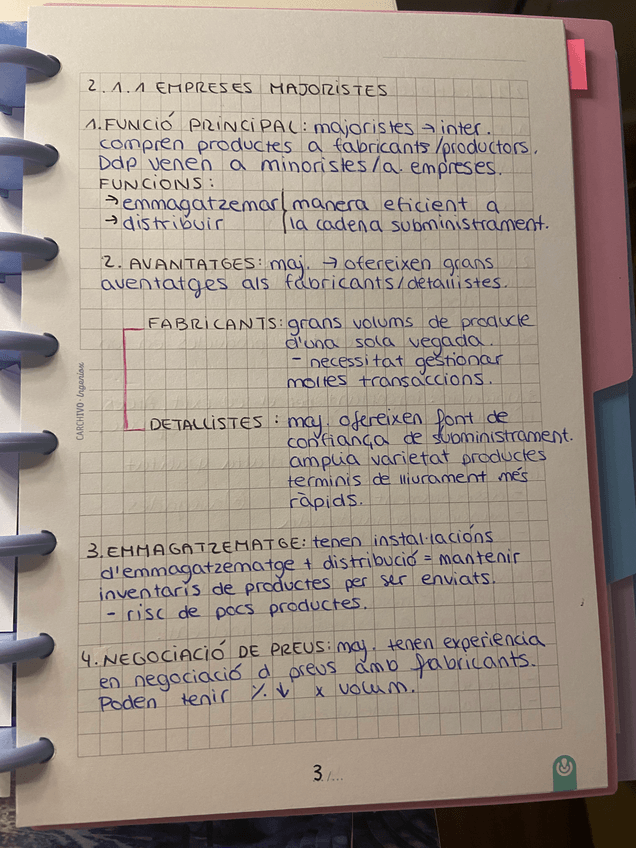 2.1.1 EMPRESES MAJORISTES
1. FUNCIÓ PRINCIPAL: majoristes → inter.
compren productes a fabricants/productors.
Ddp venen a minoristes/a. empreses.
FUNCIONS:
→ emmagatzemar | manera eficient a
→ distribuir | la cadena subministrament.
2. AVANTATGES: maj. → ofereixen grans
aventatges als fabricants/detallistes.
FABRICANTS: grans volums de producte
d'una sola vegada.
- necessitat gestionar
moltes transaccions.
DETALLISTES: maj. ofereixen font de
confiança de subministrament.
amplia varietat productes
terminis de lliurament més
ràpids.
3. EMMAGATZEMATGE: tenen instal·lacións
d'emmagatzematge + distribució = mantenir
inventaris de productes per ser enviats.
- risc de pocs productes.
4. NEGOCIACIÓ DE PREUS: maj. tenen experiencia
en negociació d preus amb fabricants.
Poden tenir % ↓ x volum.
CARCHIVO · Ingeniox
3/...